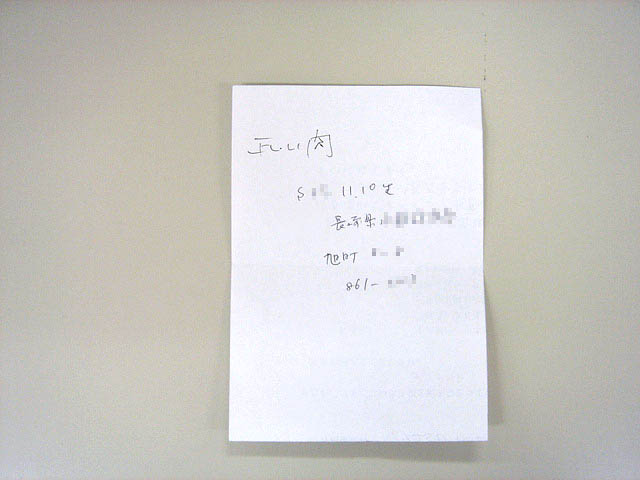 正しい肉
S 11.10生
長崎県
旭町
861-